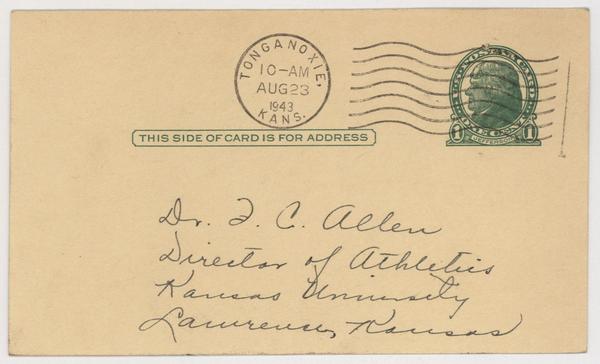 TONGANOXIE,
10-AM
AUG 23
1943
KANS.
U.S. POSTAL CARD
1 ONE CENT 1
JEFFERSON
THIS SIDE OF CARD IS FOR ADDRESS
Dr. F. C. Allen
Director of Athletics
Kansas University
Lawrence, Kansas